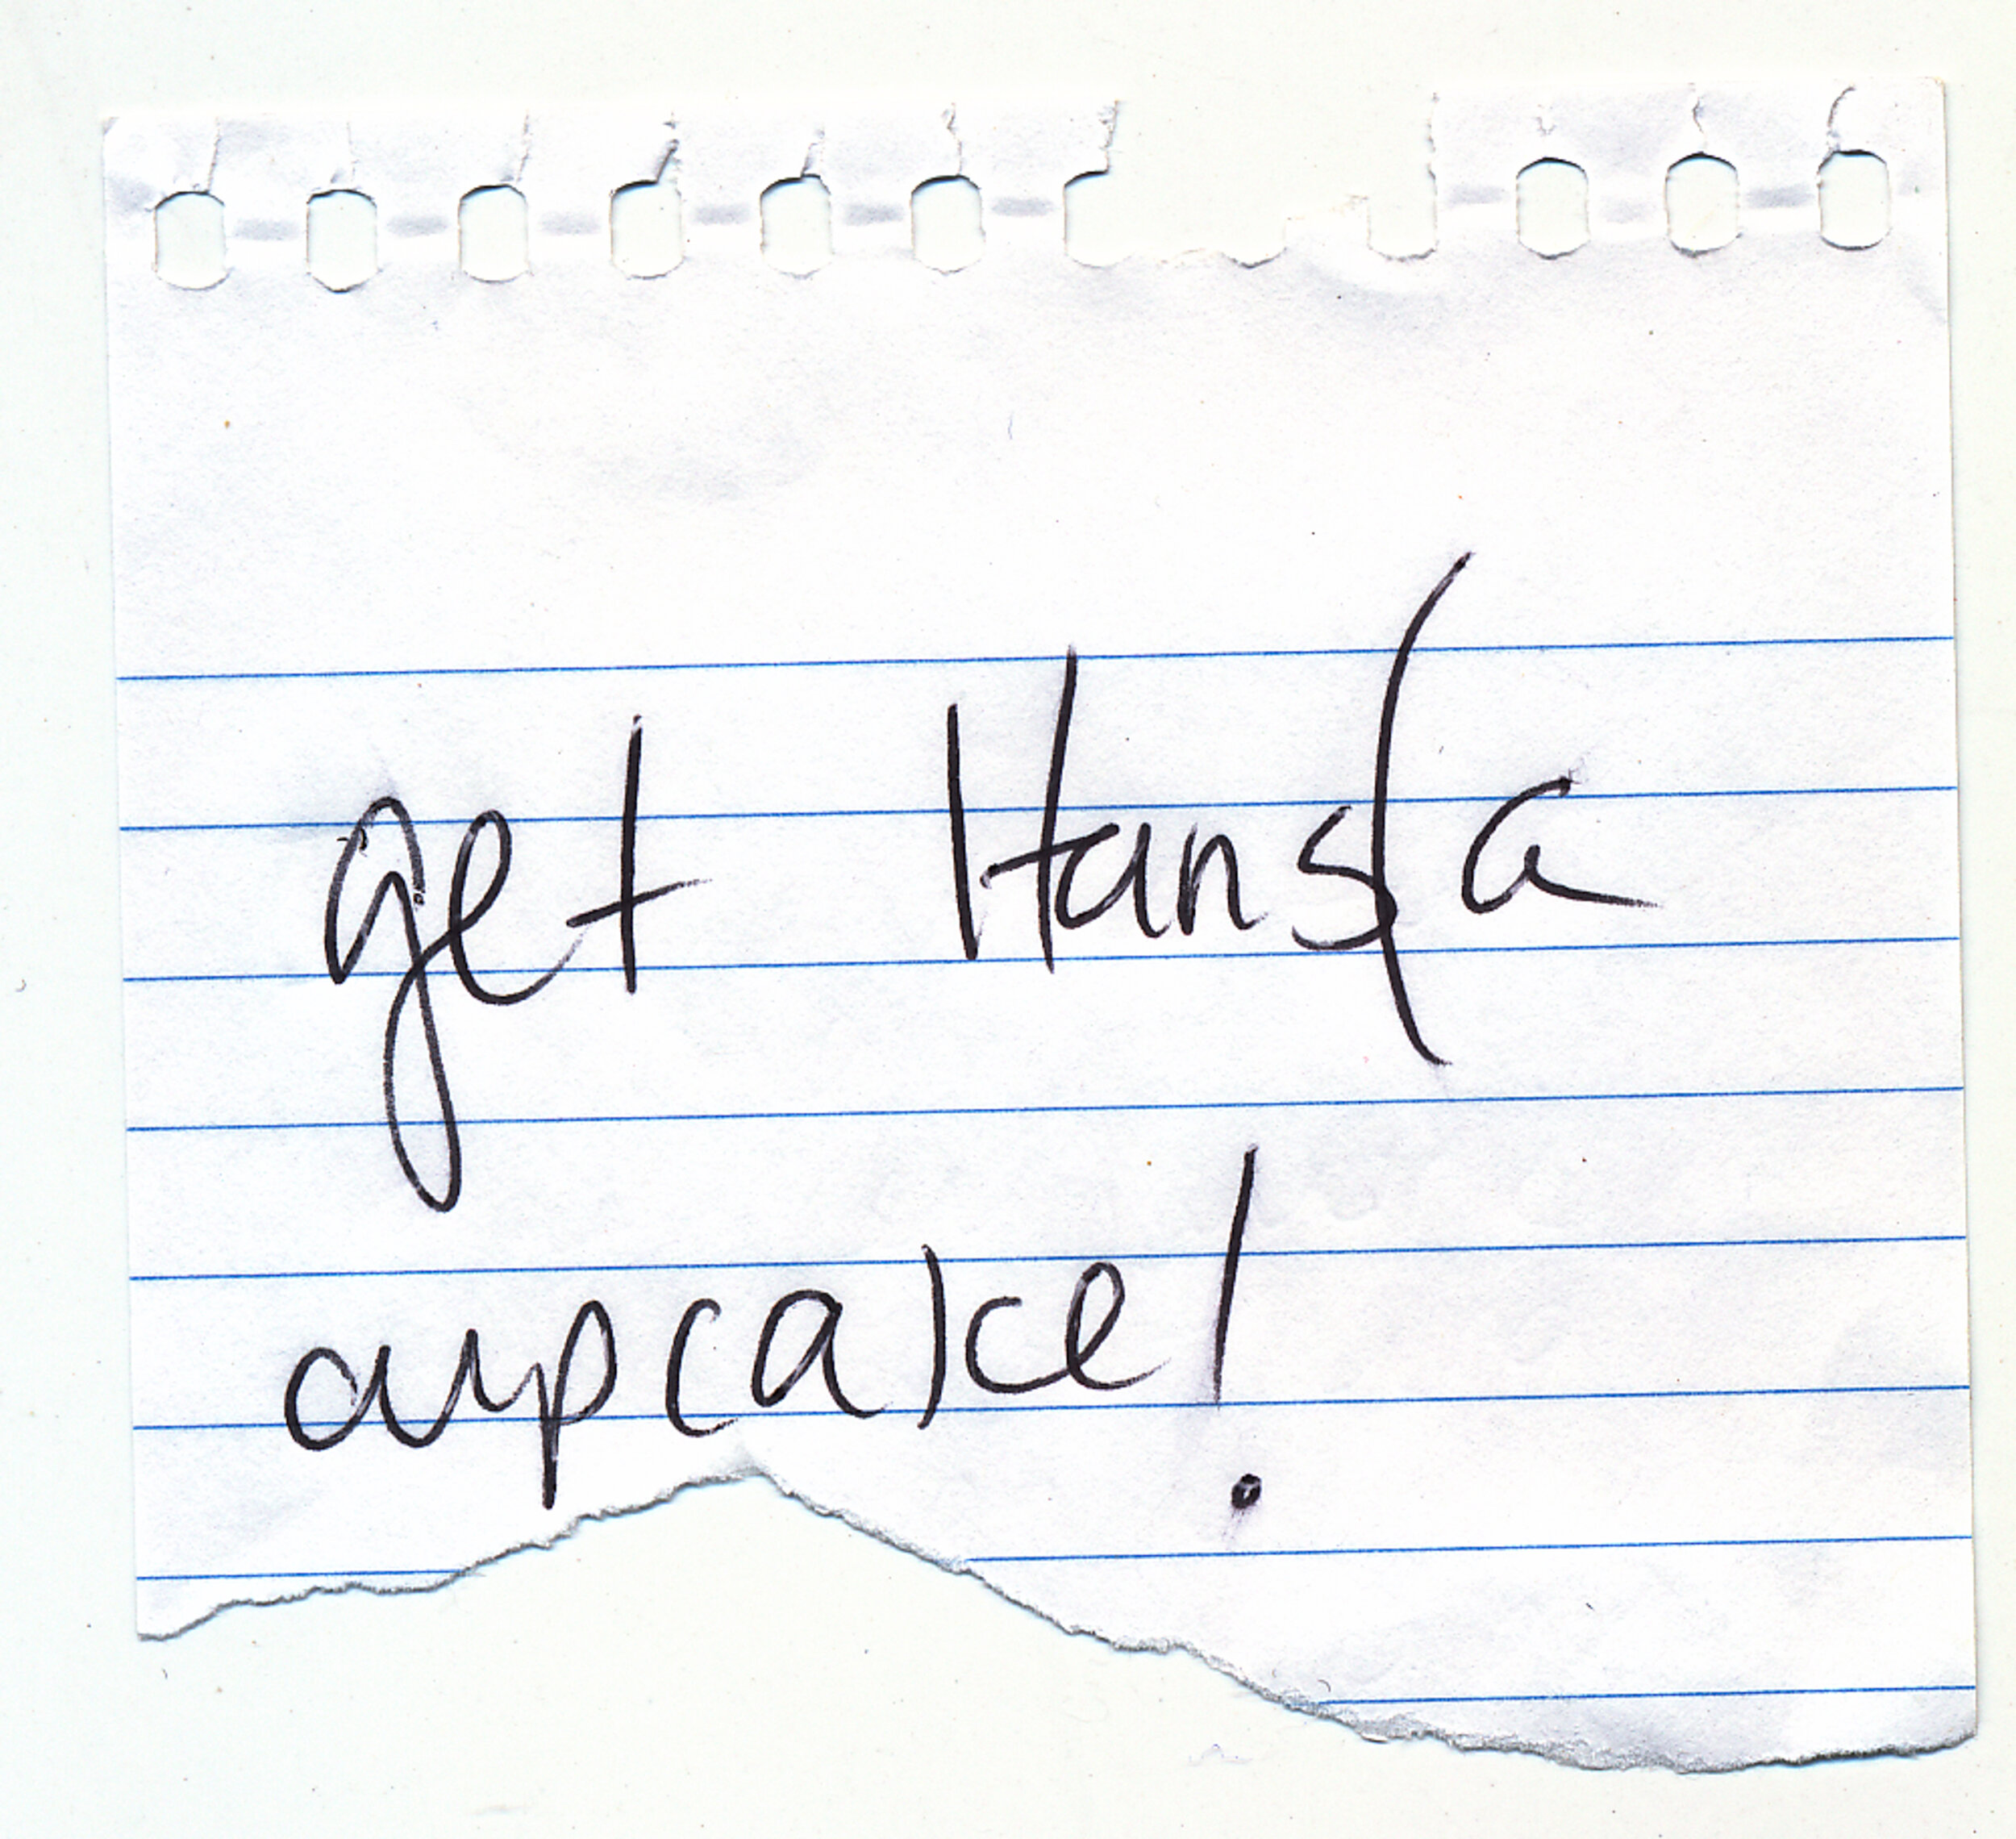 get Hans (a
cupcake!